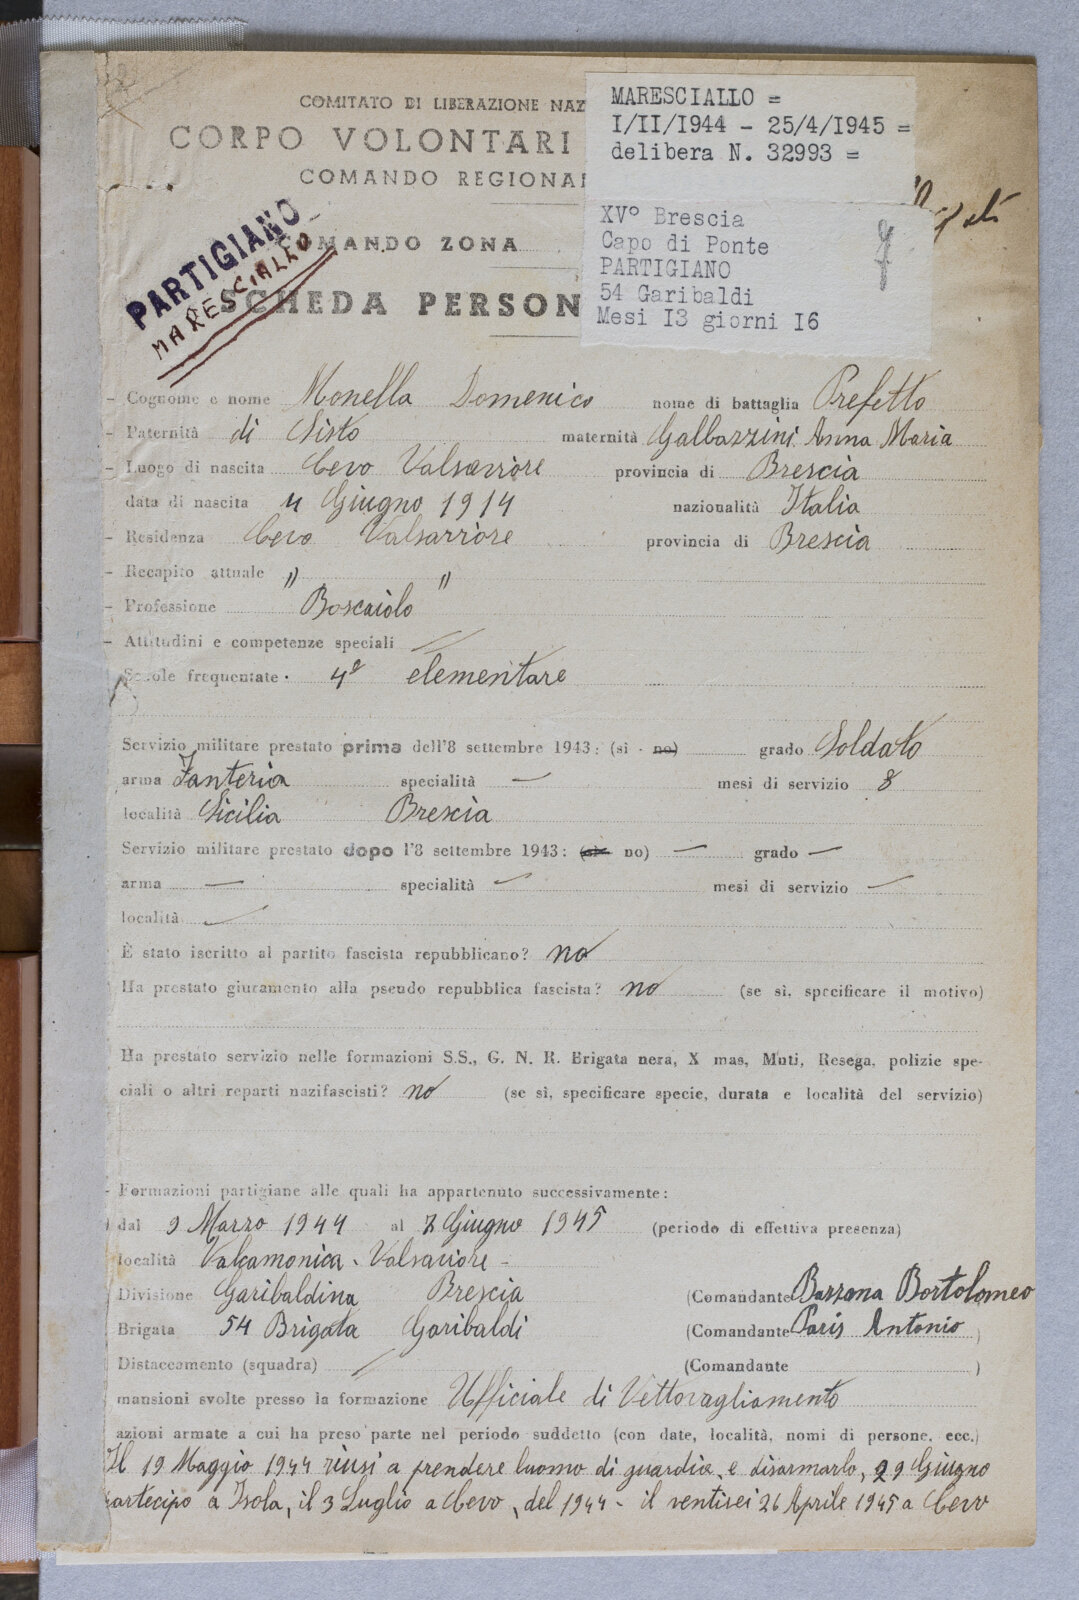 COMITATO DI LIBERAZIONE NAZ
CORPO VOLONTARI
COMANDO REGIONA
COMANDO ZONA
SCHEDA PERSON
MARESCIALLO =
I/II/1944 - 25/4/1945 =
delibera N. 32993 =
XV° Brescia
Capo di Ponte
PARTIGIANO
54 Garibaldi
Mesi I3 giorni I6
PARTIGIANO
MARESCIALLO
- Cognome e nome Monella Domenico nome di battaglia Prefetto
- Paternità di Sisto maternità Galbazzini Anna Maria
- Luogo di nascita Cevo Valsaviore provincia di Brescia
data di nascita 4 Giugno 1914 nazionalità Italia
- Residenza Cevo Valsaviore provincia di Brescia
- Recapito attuale " "
- Professione Boscaiolo
- Attitudini e competenze speciali
Scuole frequentate. 4ª elementare
Servizio militare prestato prima dell'8 settembre 1943: (sì - no) grado Soldato
arma Fanteria specialità — mesi di servizio 8
località Sicilia Brescia
Servizio militare prestato dopo l'8 settembre 1943: (sì no) — grado —
arma — specialità — mesi di servizio —
località —
È stato iscritto al partito fascista repubblicano? no
Ha prestato giuramento alla pseudo repubblica fascista? no (se sì, specificare il motivo)
Ha prestato servizio nelle formazioni S.S., G. N. R. Brigata nera, X mas, Muti, Resega, polizie spe-
ciali o altri reparti nazifascisti? no (se sì, specificare specie, durata e località del servizio)
- Formazioni partigiane alle quali ha appartenuto successivamente:
dal 9 Marzo 1944 al 7 Giugno 1945 (periodo di effettiva presenza)
località Valcamonica - Valsaviore -
Divisione Garibaldina Brescia (Comandante Bazzana Bortolomeo
Brigata 54 Brigata Garibaldi (Comandante Paris Antonio )
Distaccamento (squadra) (Comandante )
mansioni svolte presso la formazione Ufficiale di Vettovagliamento
azioni armate a cui ha preso parte nel periodo suddetto (con date, località, nomi di persone, ecc.)
Il 19 Maggio 1944 riusi a prendere luomo di guardia, e disarmarlo, 29 Giugno
partecipo a Isola, il 3 Luglio a Cevo, del 1944 - il ventisei 26 Aprile 1945 a Cevo